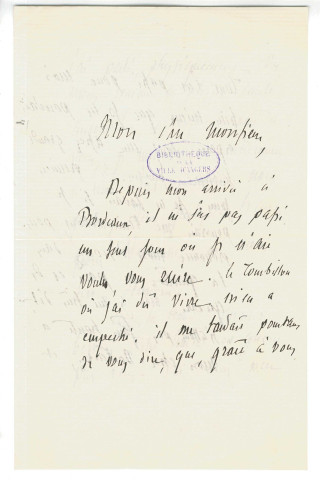 Mon cher Monsieur,
BIBLIOTHÈQUE
DE LA
VILLE D'ANGERS
Depuis mon arrivée à
Bordeaux, il ne s'est pas passé
un seul jour où je n'aie
voulu vous écrire. Le tourbillon
où j'ai dû vivre m'en a
empêché. Il me tardait pourtant
de vous dire, que, grâce à vous